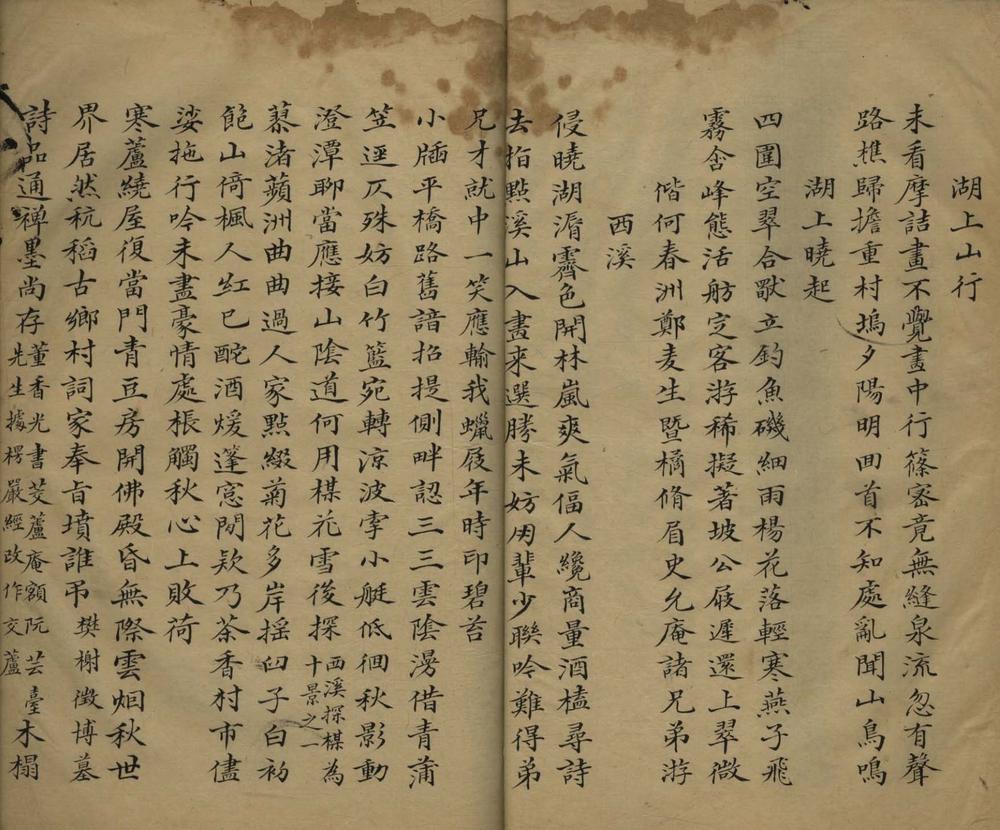 湖上山行
未看摩詰畫不覺畫中行篠密竟無縫泉流忽有聲
路樵歸擔重村塢夕陽明回首不知處亂聞山鳥鳴
湖上曉起
四圍空翠合獃立釣魚磯細雨楊花落輕寒燕子飛
霧含峰態活舫定客游稀擬著坡公屐遲還上翠微
西溪
偕何春洲鄭麦生暨橘脩眉史允庵諸兄弟游
侵曉湖漘霽色開林嵐爽氣偪人纔商量酒榼尋詩
去指點溪山入畫来選勝未妨用輩少聯吟難得弟
兄才就中一笑應輸我蠟屐年時印碧苔
小牐平橋路舊諳招提側畔認三三雲陰漫借青蒲
笠逕仄殊妨白竹籃宛轉涼波雩小艇低徊秋影動
澄潭聊當應接山陰道何用楳花雪後探西溪探楳為十景之一
蓼渚蘋洲曲曲過人家點綴菊花多岸摇臼子白初
飽山倚楓人紅已酡酒煖篷窓閒欵乃茶香村市儘
婆拖行吟未盡豪情處棖觸秋心上敗荷
寒蘆繞屋復當門青豆房開佛殿昏無際雲烟秋世
界居然秔稻古鄉村詞家奉旨墳誰弔樊榭徵博墓
詩品通禅墨尚存董香光書茭蘆庵額阮芸臺先生據楞嚴經改作交蘆木榻